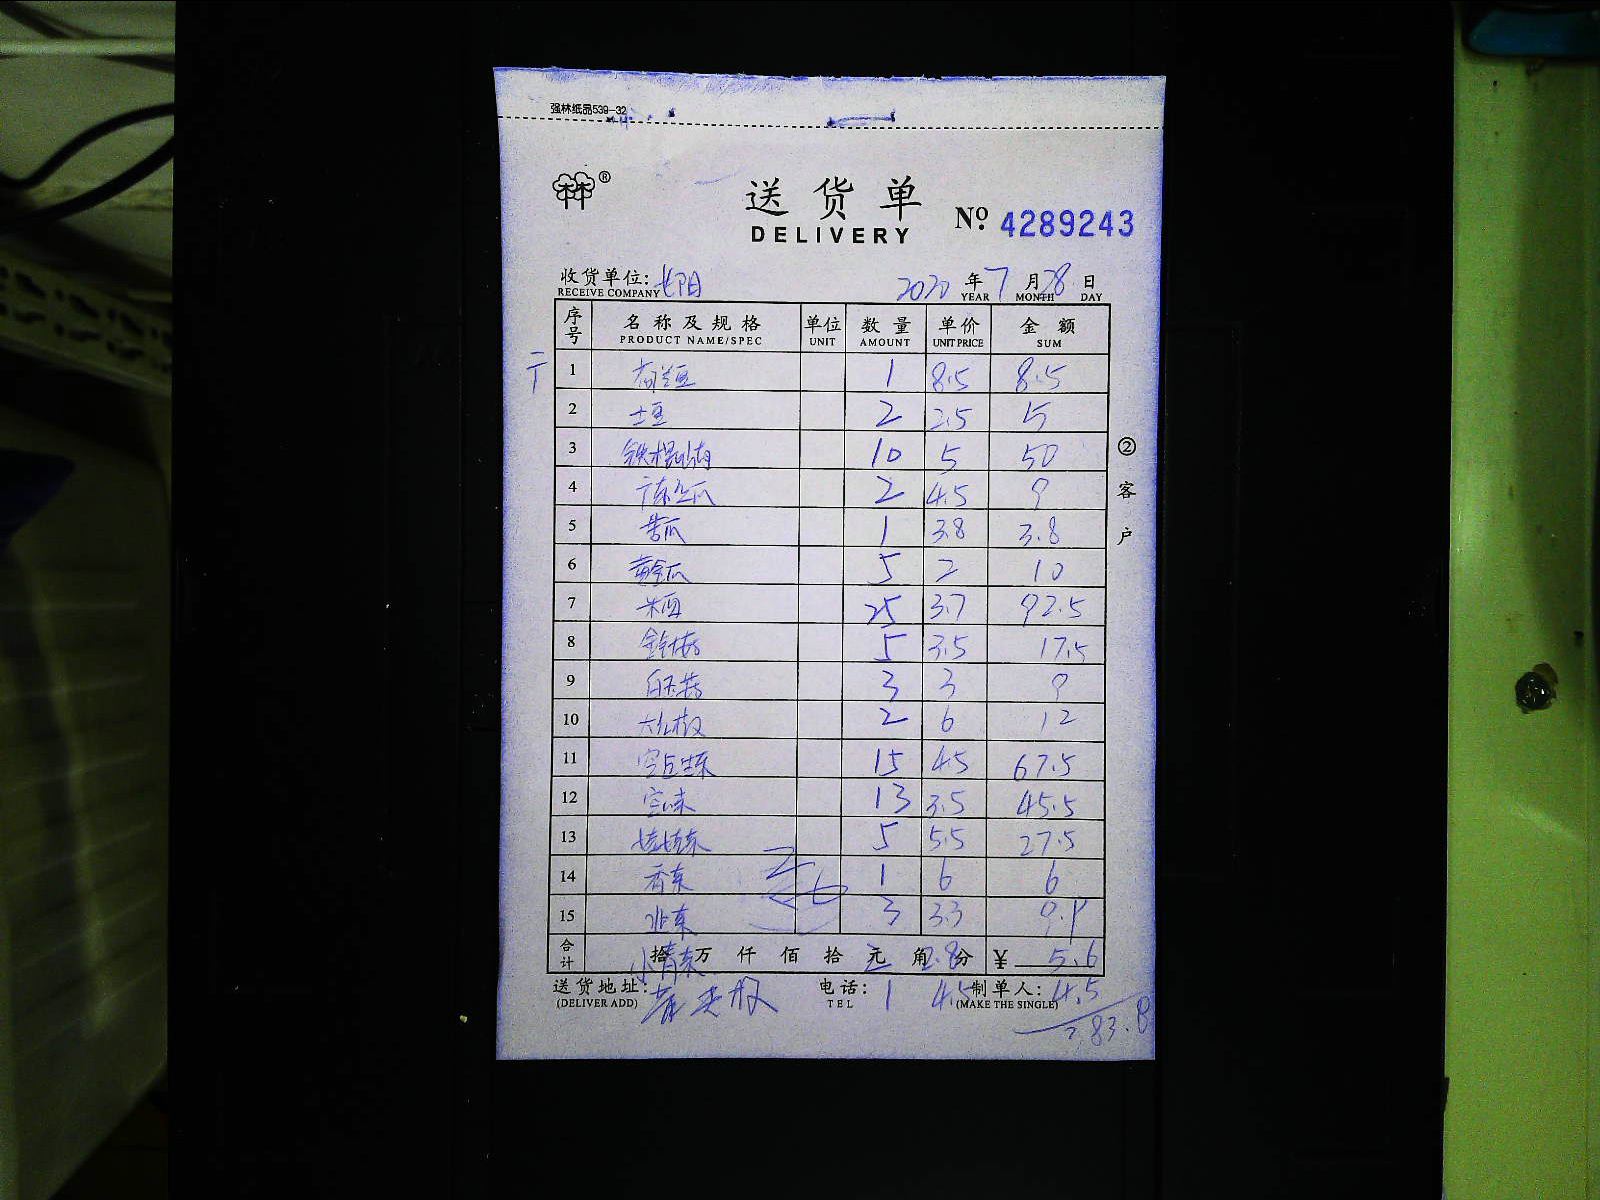 强林纸品539-32
®
送货单
DELIVERY
No. 4289243
收货单位:
RECEIVE COMPANY
2020 年 7 月 28 日
YEAR MONTH DAY
序号 名称及规格 单位 数量 单价 金额
PRODUCT NAME/SPEC UNIT AMOUNT UNIT PRICE SUM
1 荷兰豆 1 8.5 8.5
2 土豆 2 2.5 5
3 铁棍山药 10 5 50
4 2 4.5 9
5 苦瓜 1 3.8 3.8
6 黄金瓜 5 2 10
7 25 3.7 92.5
8 5 3.5 17.5
9 白玉菇 3 3 9
10 大红椒 2 6 12
11 15 4.5 67.5
12 13 3.5 45.5
13 5 5.5 27.5
14 香菜 1 6 6
15 韭菜 3 3.3 9.9
合计 拾 万 仟 佰 拾 元 角 分 ¥
小青菜 2 2.8 5.6
送货地址: 电话: 制单人:
(DELIVER ADD) TEL (MAKE THE SINGLE)
1 4.5 4.5
383.8
②客户